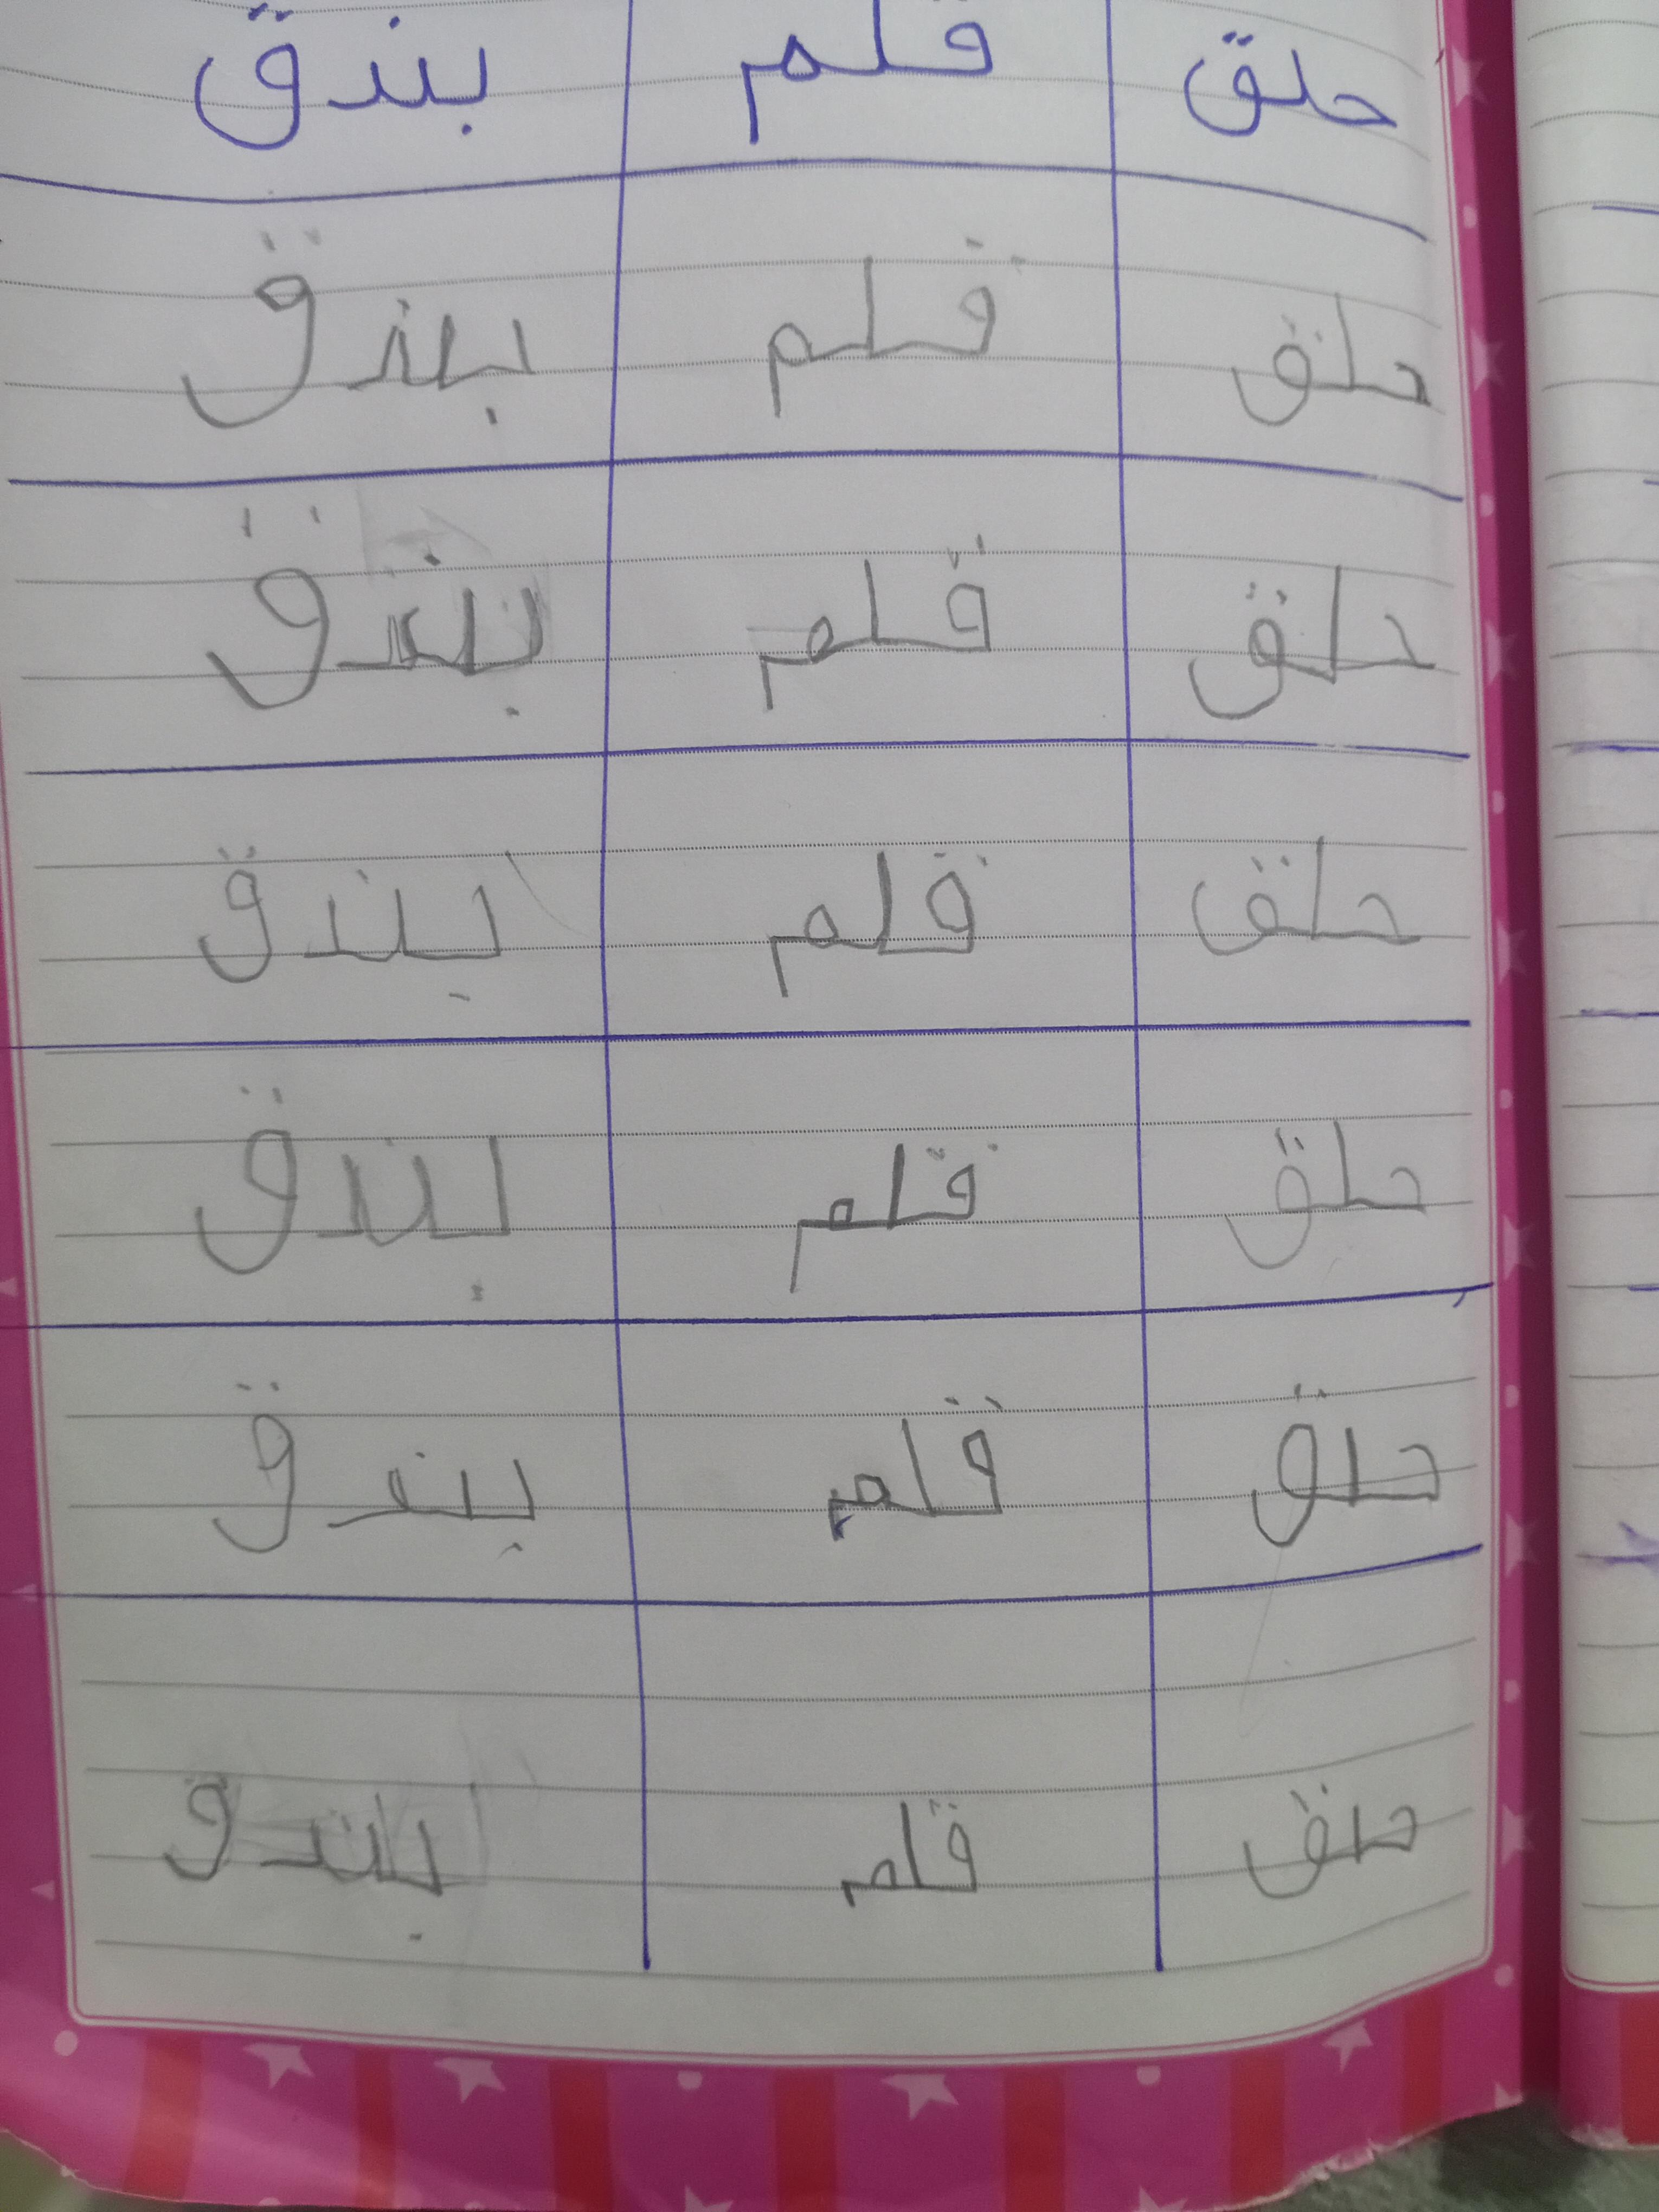 حلق قلم بندق
حلق قلم بندق
حلق قلم بندق
حلق قلم بندق
حلق قلم بندق
حلق قلم بندق
حلق قلم بندق